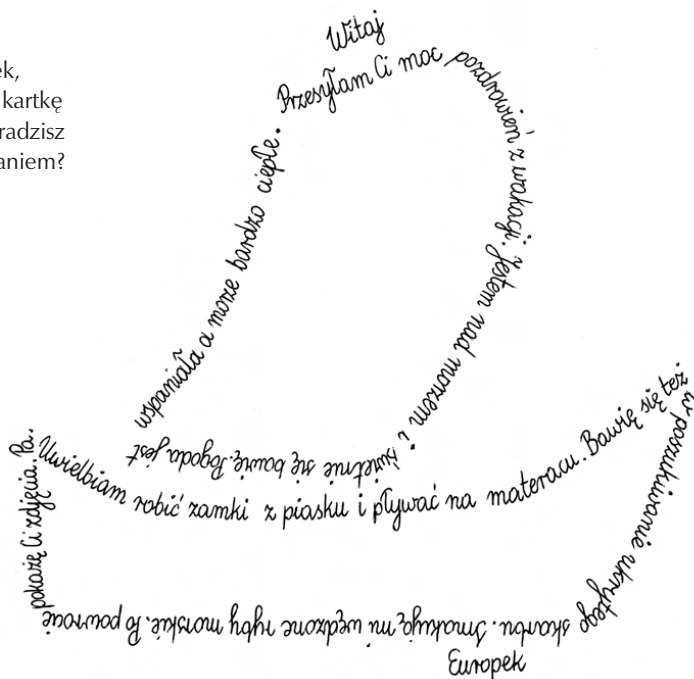 ek,
kartkę
radzisz
aniem?
Witaj
Przesyłam Ci moc pozdrowień z wakacji. Jestem nad morzem i świetnie się bawię. Pogoda jest wspaniała a morze bardzo ciepłe.
Uwielbiam robić zamki z piasku i pływać na materacu. Bawię się też w poszukiwanie ukrytego skarbu. Smakują mi wędzone ryby morskie. Po powrocie pokażę Ci zdjęcia. Pa.
Europek